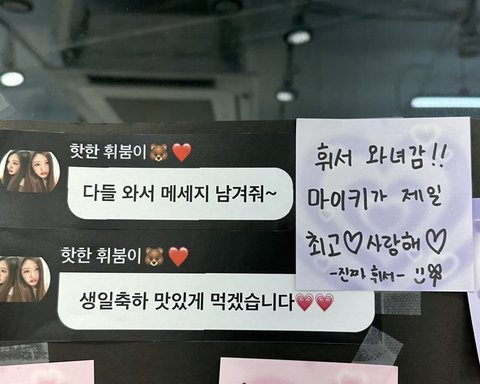 핫한 휘붐이🐻❤️
다들 와서 메세지 남겨줘~
핫한 휘붐이🐻❤️
생일축하 맛있게 먹겠습니다💗💗
휘서 와녀감!!
마이키가 제일
최고♡사랑해♡
-진짜 휘서-